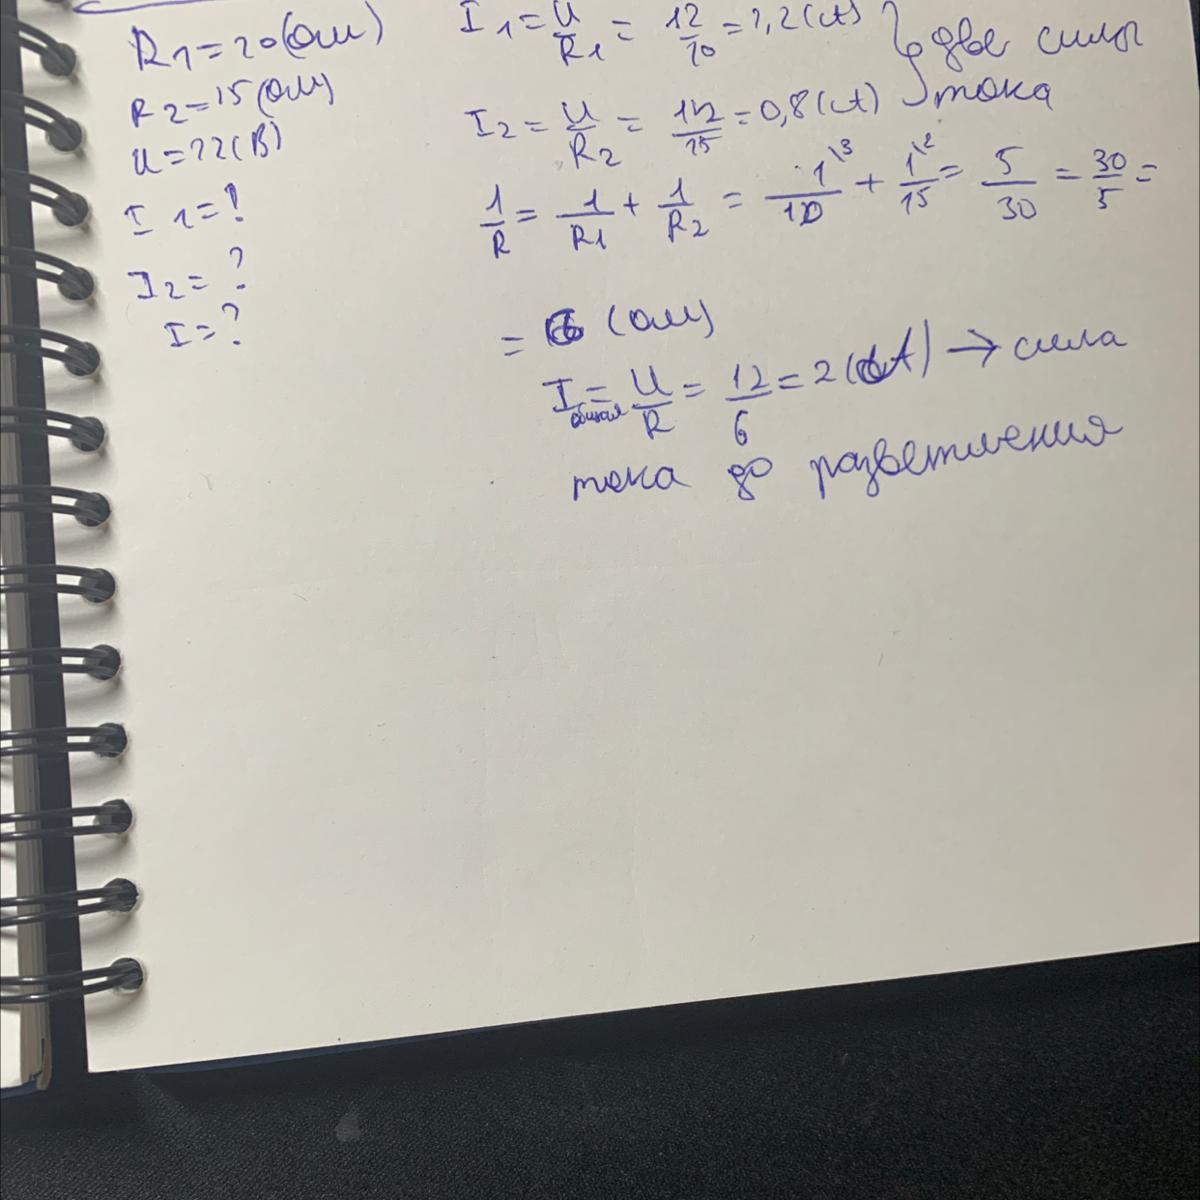 R1=20(Ом)
R2=15(Ом)
U=22(В)
I1=?
I2=?
I=?
I1=U/R1=12/10=1,2(А) } две силы
I2=U/R2=12/15=0,8(А) тока
1/R=1/R1+1/R2=1\3/10+1\2/15=5/30=30/5=
=6(Ом)
Iобщая=U/R=12/6=2(А)→сила
тока до разветвления